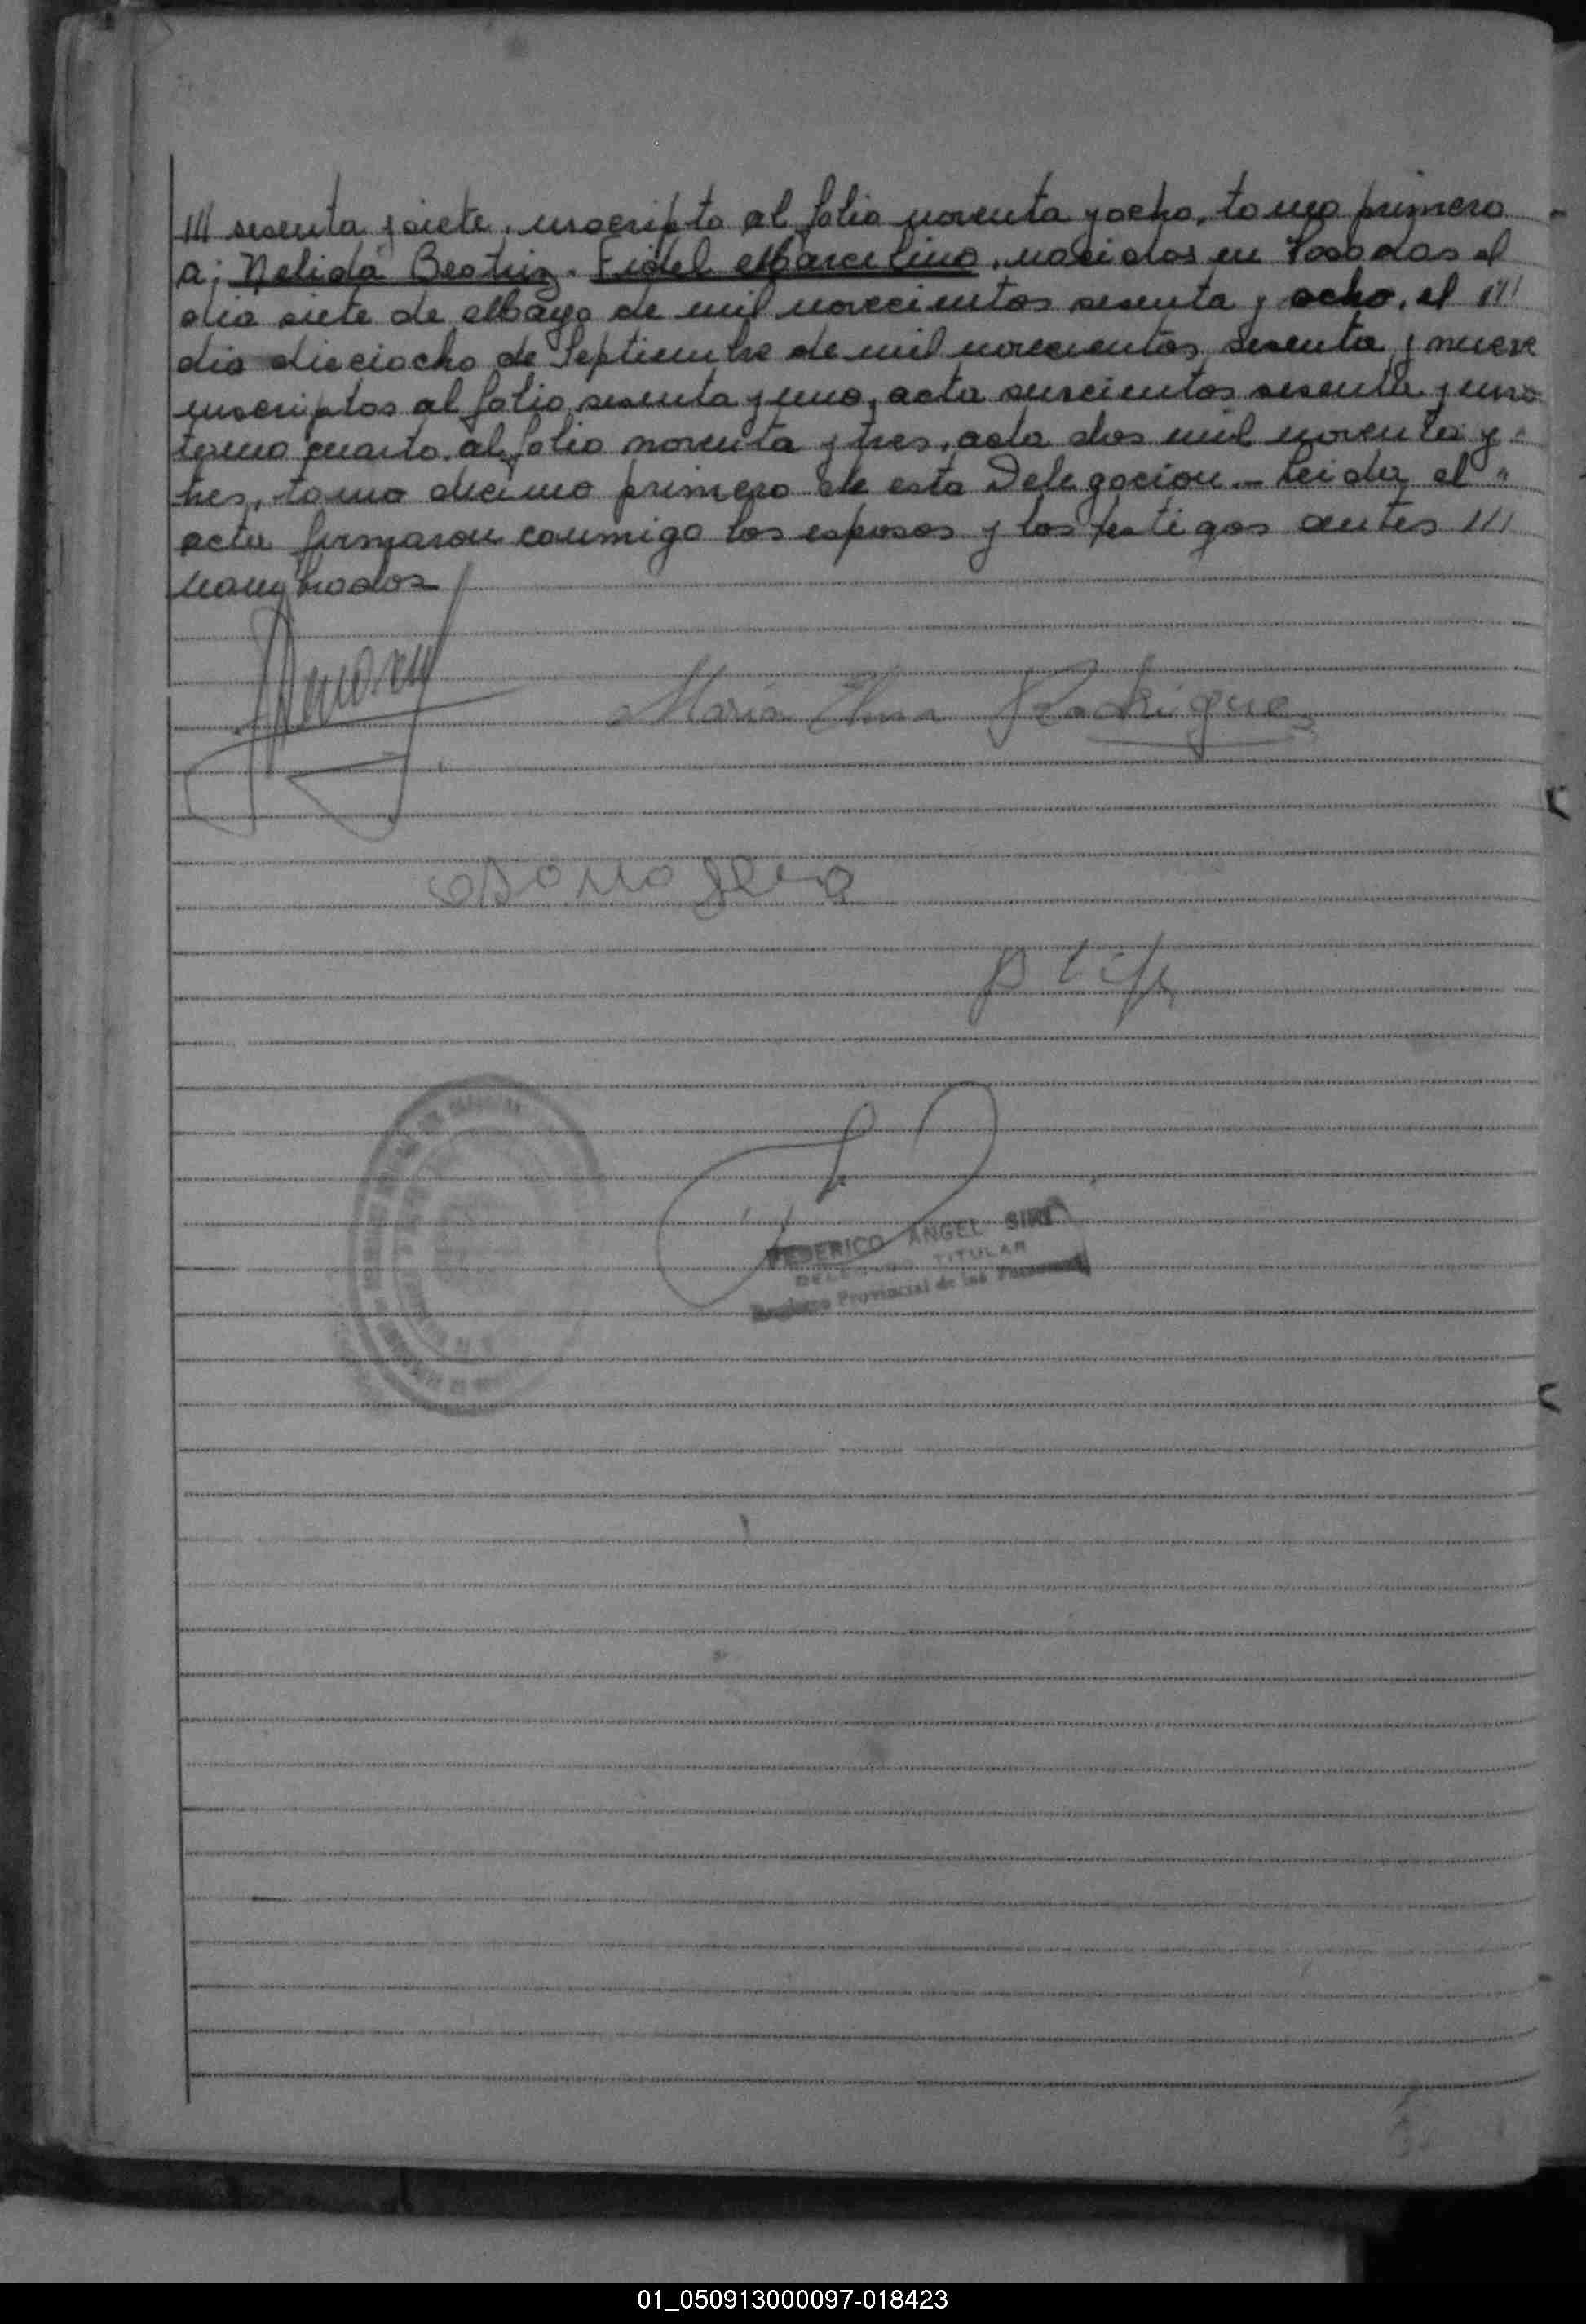 /// sesenta y siete, inscripto al folio noventa y ocho, tomo primero
a; Nelida Beatriz. Fidel Marcelino, nacidos en Posadas el
dia siete de Mayo de mil novecientos sesenta y ocho, el ///
dia dieciocho de Septiembre de mil novecientos sesenta y nueve
inscriptos al folio sesenta y uno, acta seiscientos sesenta y uno
tomo cuarto, al folio noventa y tres, acta dos mil noventa y
tres, tomo decimo primero de esta Delegacion.- Leida el
acta firmaron conmigo los esposos y los testigos antes ///
nombrados
Maria Elena Rodrigue
FEDERICO ANGEL SIRI
DELEGADO TITULAR
Registro Provincial de las Personas
01_050913000097-018423